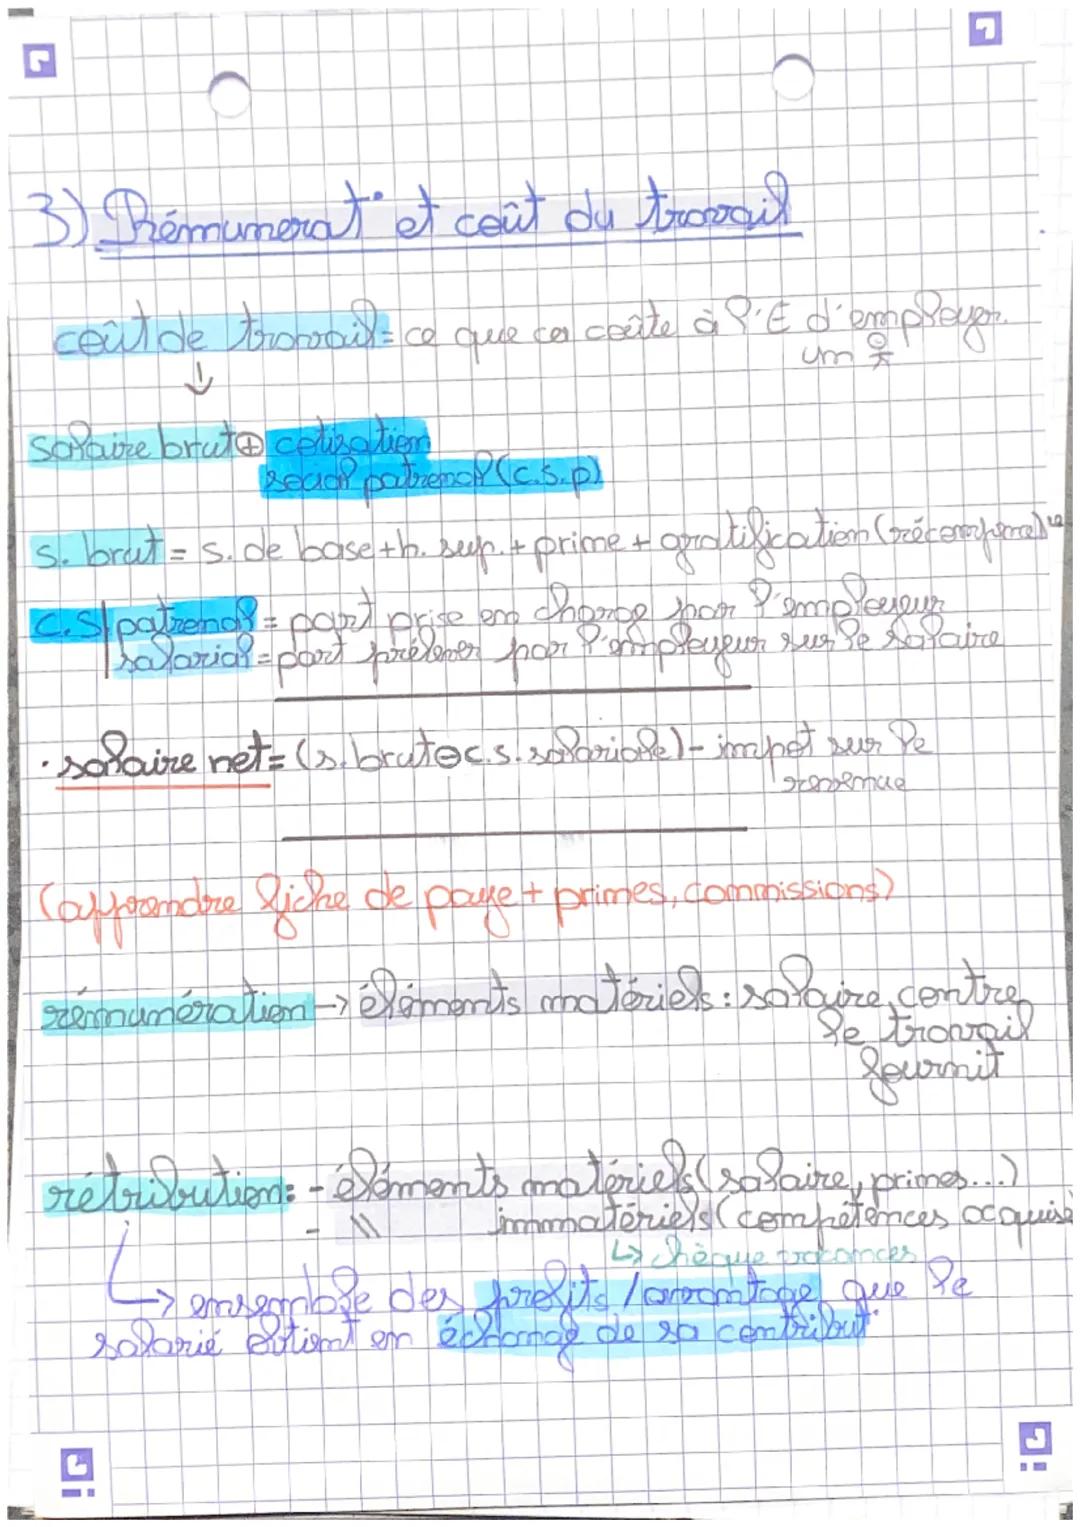 3) Rémunerat° et coût du travail
coût de travail = ce que ça coûte à l'E d'employer
un
↓
salaire brut ⊕ cotisation
social patronal (c.s.p)
s. brut = s. de base + h. sup. + prime + gratification (récompense)
C.S| patronal = part prise en charge par l'employeur
salarial = part prélever par l'employeur sur le salaire
• salaire net = (s. brut ⊖ c.s. salariale) - impot sur le
revenue
(apprendre fiche de paye + primes, commissions)
rémunération → éléments matériels : salaire contre
le travail
fournit
rétribution : - éléments matériels (salaire, primes...)
- \\ immatériels (compétences acquise
↳ chèque vacances
↳ ensemble des profits / avantage que le
salarié obtient en échange de sa contribut°